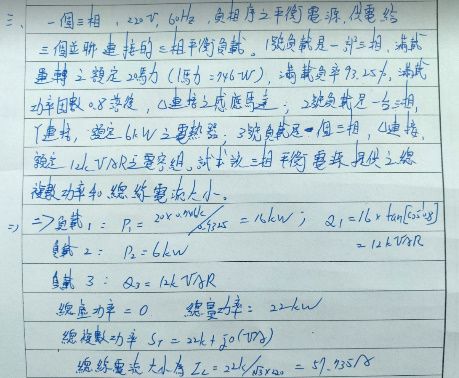 三、一個三相, 220V, 60Hz, 負相序之平衡電源, 供電給
三個並聯連接的三相平衡負載。1號負載是一部三相, 滿載
運轉之額定20馬力 (1馬力=746W), 滿載效率93.25%, 滿載
功率因數0.8落後, △連接之感應馬達; 2號負載是一台三相,
Y連接, 額定6kW之電熱器; 3號負載是一個三相, △連接,
額定12kVAR之電容組, 試求該三相平衡電源提供之總
複數功率和總線電流大小。
⇒ 負載1: P₁ = 20×0.746k/0.9325 = 16kW; Q₁ = 16×tan[cos⁻¹0.8]
= 12kVAR
負載2: P₂ = 6kW
負載3: Q₃ = 12kVAR
總虛功率 = 0 總實功率: 22kW
總複數功率 S_T = 22k + j0 (VA)
總線電流大小為 I_L = 22k/√3×220 = 57.735A